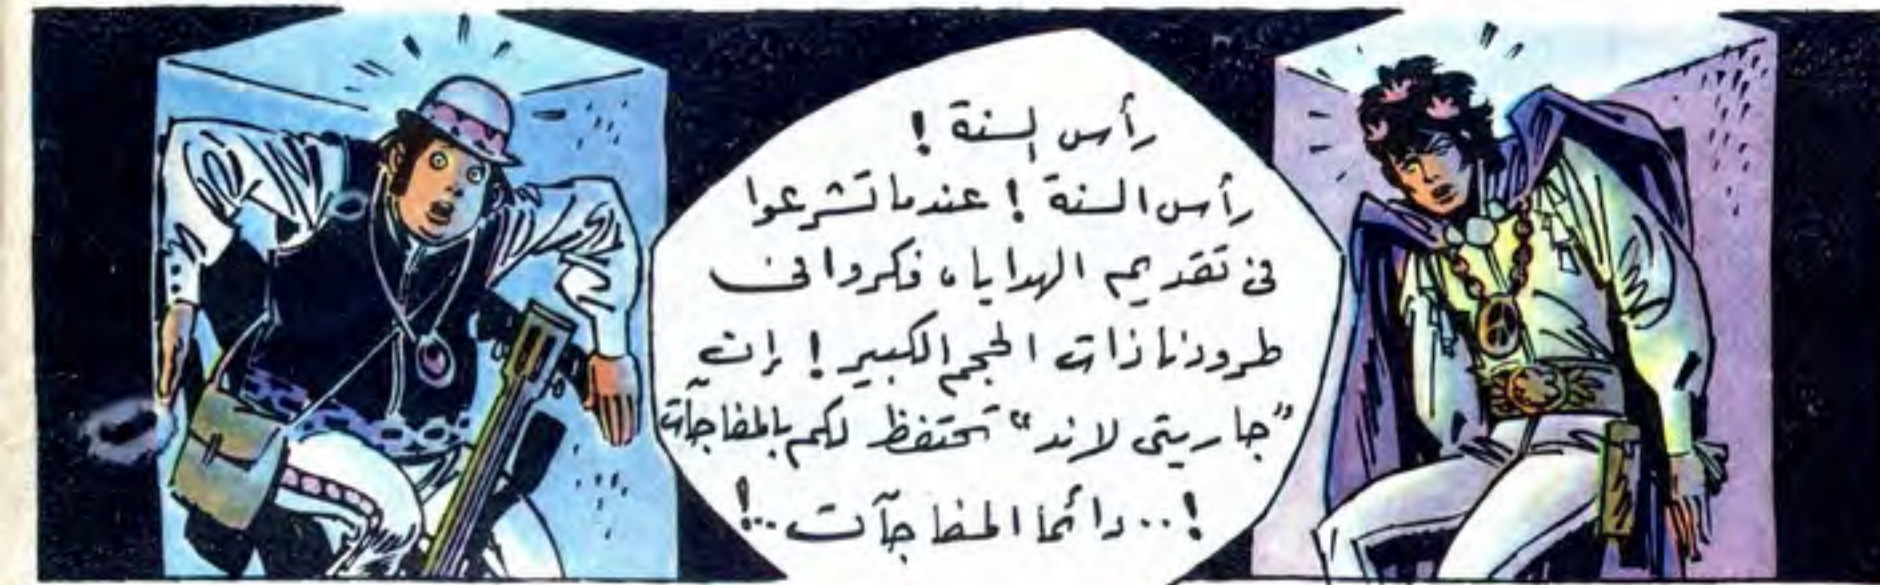 رأس السنة !
رأس السنة ! عندما تشرعوا
فى تقديم الهدايا، فكروا فى
طرودنا ذات الحجم الكبير ! إن
"جاريتى لاند" تحتفظ لكم بالمفاجآت
!.. دائماً المفاجآت ..!